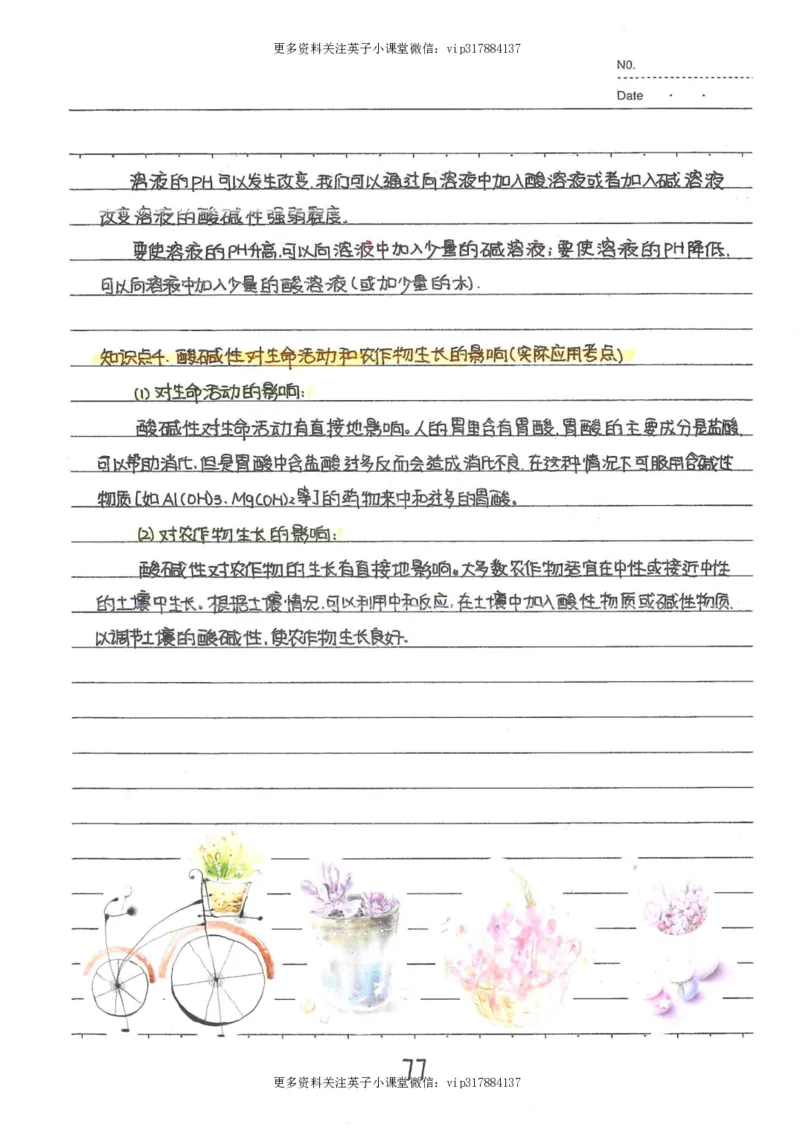 更多资料关注英子小课堂微信：vip317884137
N0.
Date · ·
溶液的PH可以发生改变.我们可以通过向溶液中加入酸溶液或者加入碱溶液
改变溶液的酸碱性强弱程度.
要使溶液的PH升高,可以向溶液中加入少量的碱溶液;要使溶液的PH降低,
可以向溶液中加入少量的酸溶液(或加少量的水).
知识点4. 酸碱性对生命活动和农作物生长的影响(实际应用考点)
(1)对生命活动的影响:
酸碱性对生命活动有直接地影响。人的胃里含有胃酸,胃酸的主要成分是盐酸,
可以帮助消化,但是胃酸中含盐酸过多反而会造成消化不良.在这种情况下可服用含碱性
物质[如Al(OH)3、Mg(OH)2等]的药物来中和过多的胃酸。
(2)对农作物生长的影响:
酸碱性对农作物的生长有直接地影响。大多数农作物适宜在中性或接近中性
的土壤中生长。根据土壤情况,可以利用中和反应,在土壤中加入酸性物质或碱性物质,
以调节土壤的酸碱性,使农作物生长良好.
77
更多资料关注英子小课堂微信：vip317884137